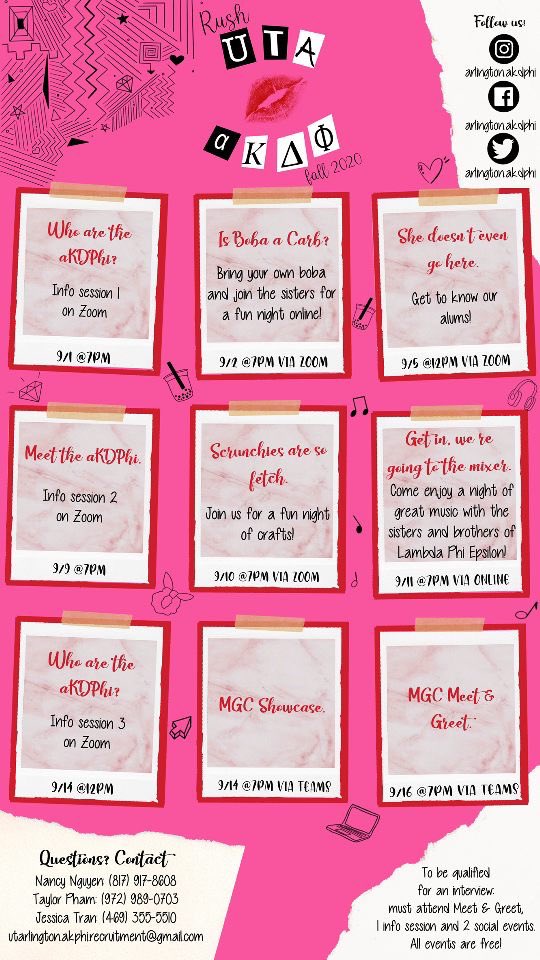 Rush
UTA
αKΔΦ
fall 2020
Follow us!
arlington.akdphi
arlington.akdphi
arlington.akdphi
Who are the
aKDPhi?
Info session 1
on Zoom
9/1 @7PM
Is Boba a Carb?
Bring your own boba
and join the sisters for
a fun night online!
9/2 @7PM VIA ZOOM
She doesn't even
go here.
Get to know our
alums!
9/5 @12PM VIA ZOOM
Meet the aKDPhi.
Info session 2
on Zoom
9/9 @7PM
Scrunchies are so
fetch.
Join us for a fun night
of crafts!
9/10 @7PM VIA ZOOM
Get in, we're
going to the mixer.
Come enjoy a night of
great music with the
sisters and brothers of
Lambda Phi Epsilon!
9/11 @7PM VIA ONLINE
Who are the
aKDPhi?
Info session 3
on Zoom
9/14 @12PM
MGC Showcase.
9/14 @7PM VIA TEAMS
MGC Meet &
Greet.
9/16 @7PM VIA TEAMS
Questions? Contact
Nancy Nguyen: (817) 917-8608
Taylor Pham: (972) 989-0703
Jessica Tran: (469) 355-5510
utarlington.akphirecruitment@gmail.com
To be qualified
for an interview:
must attend Meet & Greet,
1 info session and 2 social events.
All events are free!